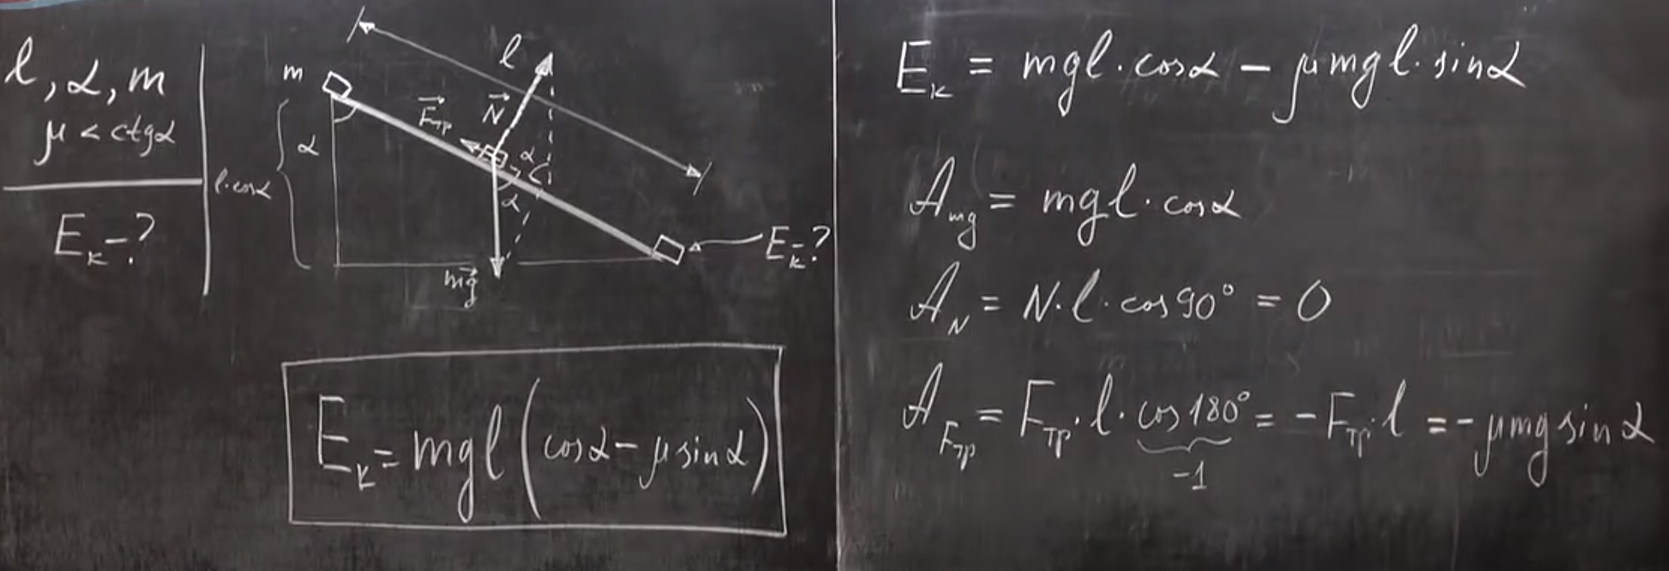 l, α, m
μ < ctgα
E_к - ?
m
α
l·cosα
l
N⃗
F⃗_тр
α
α
mg⃗
E_к - ?
E_к = mgl (cosα - μ sinα)
E_к = mgl · cosα - μmgl · sinα
A_mg = mgl · cosα
A_N = N·l·cos90° = 0
A_Fтр = F_тр·l·cos180° = -F_тр·l = -μmg sinα
-1